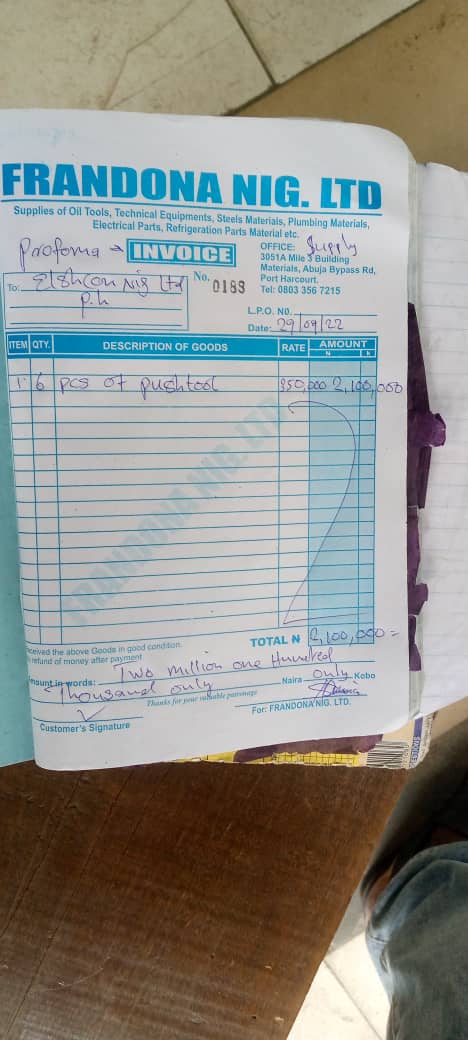 FRANDONA NIG. LTD
Supplies of Oil Tools, Technical Equipments, Steels Materials, Plumbing Materials,
Electrical Parts, Refrigeration Parts Material etc.
Proforma → INVOICE
OFFICE: Supply
3051A Mile 3 Building
Materials, Abuja Bypass Rd,
Port Harcourt.
Tel: 0803 356 7215
To: Elshcon Nig Ltd
P.h
No. 0189
L.P.O. NO.
Date: 29/09/22
ITEM QTY. DESCRIPTION OF GOODS RATE AMOUNT
N K
1. 6 pcs of pushtool 350,000 2,100,000
FRANDONA NIG. LTD
TOTAL N 2,100,000 =
eceived the above Goods in good condition.
refund of money after payment
mount in words: Two million one Hundred
Thousand only Naira only Kobo
Thanks for your valuable patronage
Customer's Signature
For: FRANDONA NIG. LTD.